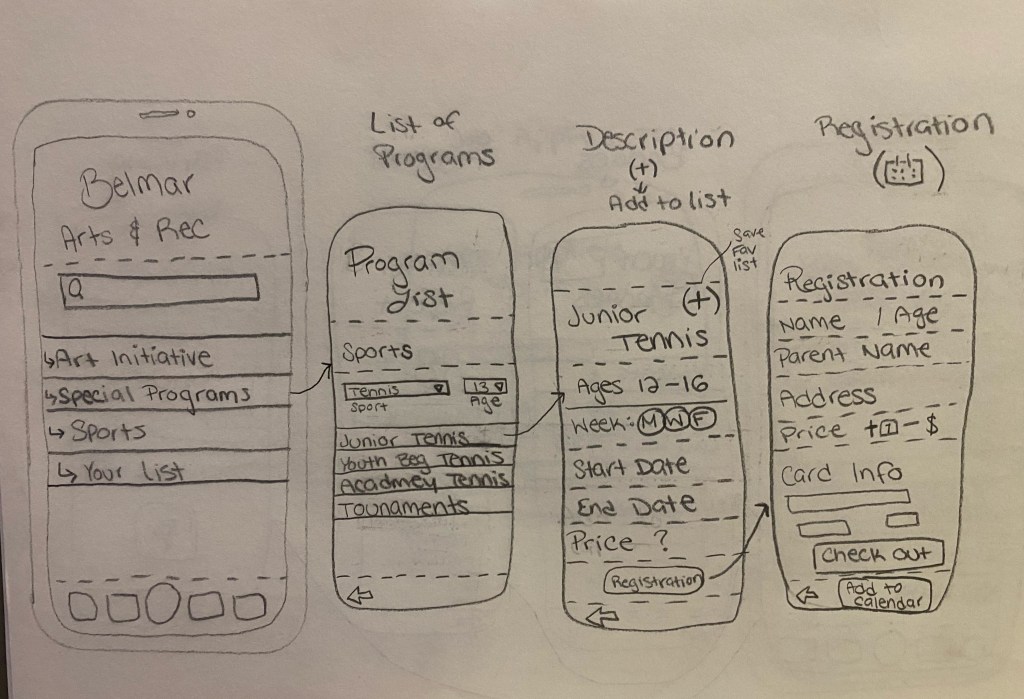 Belmar
Arts & Rec
Q
↳Art Initiative
↳Special Programs
↳ Sports
↳ Your list
List of
Programs
Program
List
Sports
Tennis
Sport
13
Age
Junior Tennis
Youth Beg Tennis
Acadmey Tennis
Tounaments
Description
(+)
Add to list
Save
Fav
list
(+)
Junior
Tennis
Ages 12-16
Week: M W F
Start Date
End Date
Price ?
Registration
Registration
Registration
Name / Age
Parent Name
Address
Price +1- $
Card Info
Check out
Add to
calendar